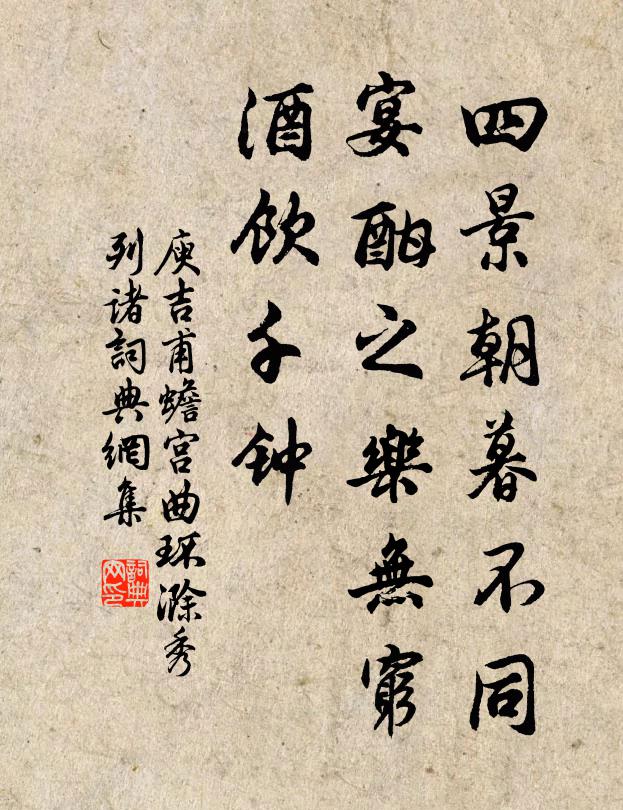 四景朝暮不同
宴酣之樂無窮
酒飲千钟
庾吉甫蟾宫曲环滁秀
列诸詞典網集
詞典
网印